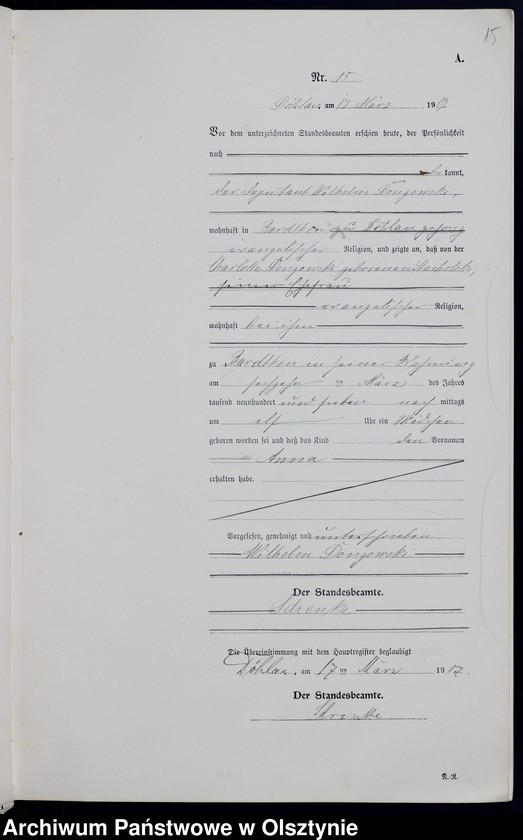 15
A.
Nr. 15
Döhlau, am 17 März 1907.
Vor dem unterzeichneten Standesbeamten erschien heute, der Persönlichkeit
nach
bekannt,
der Deputant Wilhelm Dongowski,
wohnhaft in zu Döhlau gehörig
evangelischer Religion, und zeigte an, daß von der
Charlotte Dongowski geborenen
seiner Ehefrau
evangelischer Religion,
wohnhaft bei ihm
zu in seiner Wohnung
am sechzehn ten März des Jahres
tausend neunhundert und sieben nach mittags
um elf Uhr ein Mädchen
geboren worden sei und daß das Kind den Vornamen
Anna
erhalten habe.
Vorgelesen, genehmigt und unterschrieben
Wilhelm Dongowski
Der Standesbeamte.
Die Übereinstimmung mit dem Hauptregister beglaubigt
Döhlau, am 17 ten März 1907.
Der Standesbeamte.
Archiwum Państwowe w Olsztynie